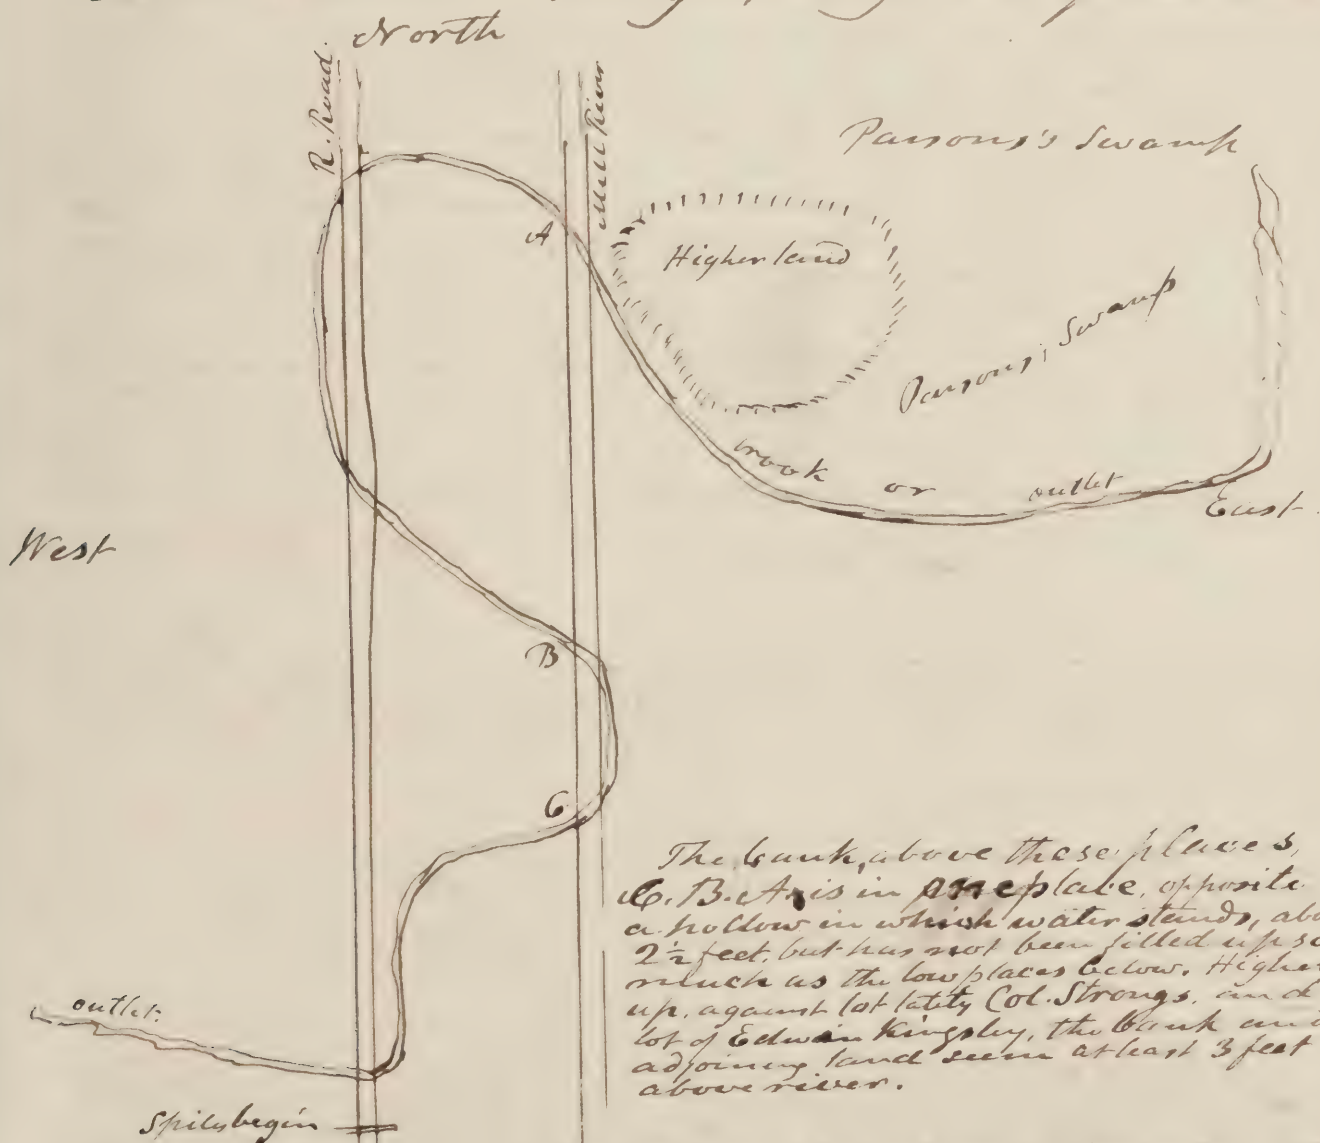 North
R. Road.
Mill River
Parsons's Swamp
A
Higher land
Parsons's Swamp
brook or outlet
East
West
B
C
The bank, above these places,
C. B. A, is in one place, opposite
a hollow in which water stands, abo
2½ feet, but has not been filled up so
much as the low places below. Higher
up, against lot lately Col. Strongs, and
lot of Edwin Kingsley, the bank and
adjoining land seem at least 3 feet
above river.
outlet.
Spiles begin